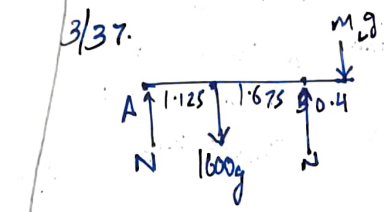 3/37.
M_L g
A 1.125 1.675 B 0.4
N 1600g N